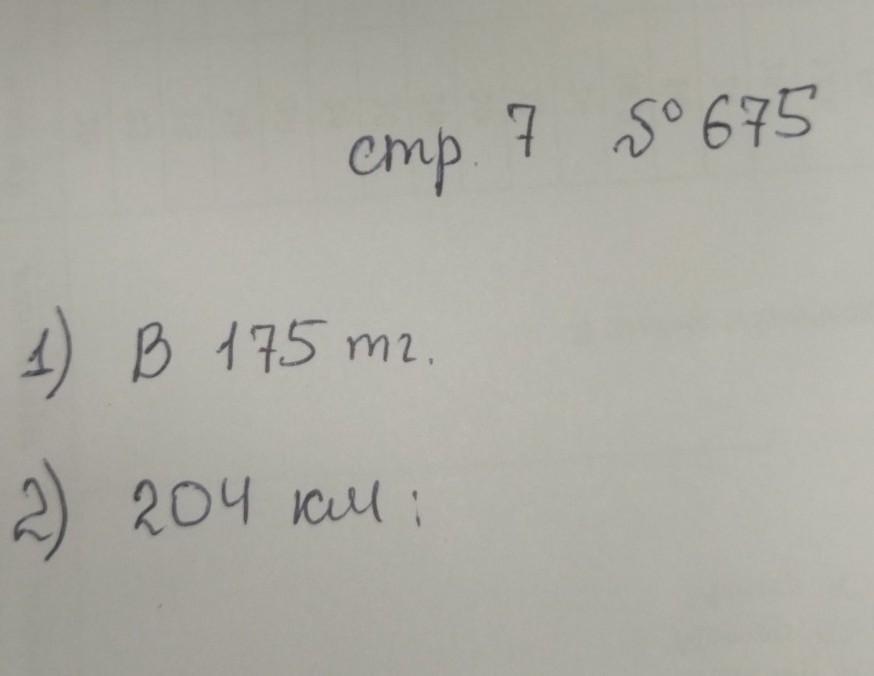 стр. 7 № 675
1) В 175 тг.
2) 204 км ;